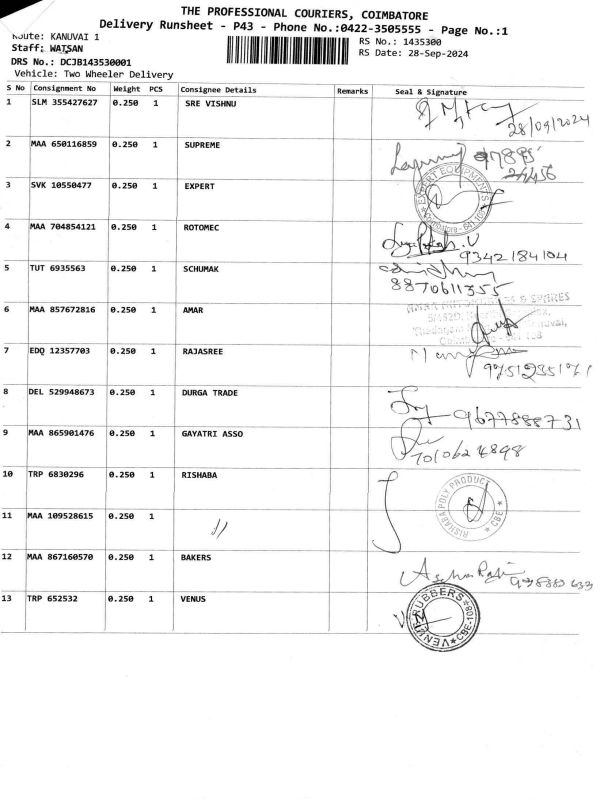 THE PROFESSIONAL COURIERS, COIMBATORE
Delivery Runsheet - P43 - Phone No.:0422-3505555 - Page No.:1
Route: KANUVAI 1
RS No.: 1435300
Staff: WATSAN
RS Date: 28-Sep-2024
DRS No.: DCJB143530001
Vehicle: Two Wheeler Delivery
S No Consignment No Weight PCS Consignee Details Remarks Seal & Signature
1 SLM 355427627 0.250 1 SRE VISHNU
28/09/2024
2 MAA 650116859 0.250 1 SUPREME
3 SVK 10550477 0.250 1 EXPERT
EXPERT EQUIPMENTS
4 MAA 704854121 0.250 1 ROTOMEC
9342184104
5 TUT 6935563 0.250 1 SCHUMAK
8870611355
6 MAA 857672816 0.250 1 AMAR
& SPARES
7 EDQ 12357703 0.250 1 RAJASREE
8 DEL 529948673 0.250 1 DURGA TRADE
9677888731
9 MAA 865901476 0.250 1 GAYATRI ASSO
7010624898
10 TRP 6830296 0.250 1 RISHABA
RISHABA POLY PRODUCT * CBE *
11 MAA 109528615 0.250 1 〃
12 MAA 867160570 0.250 1 BAKERS
13 TRP 652532 0.250 1 VENUS
VENUS RUBBERS * CBE-108 *